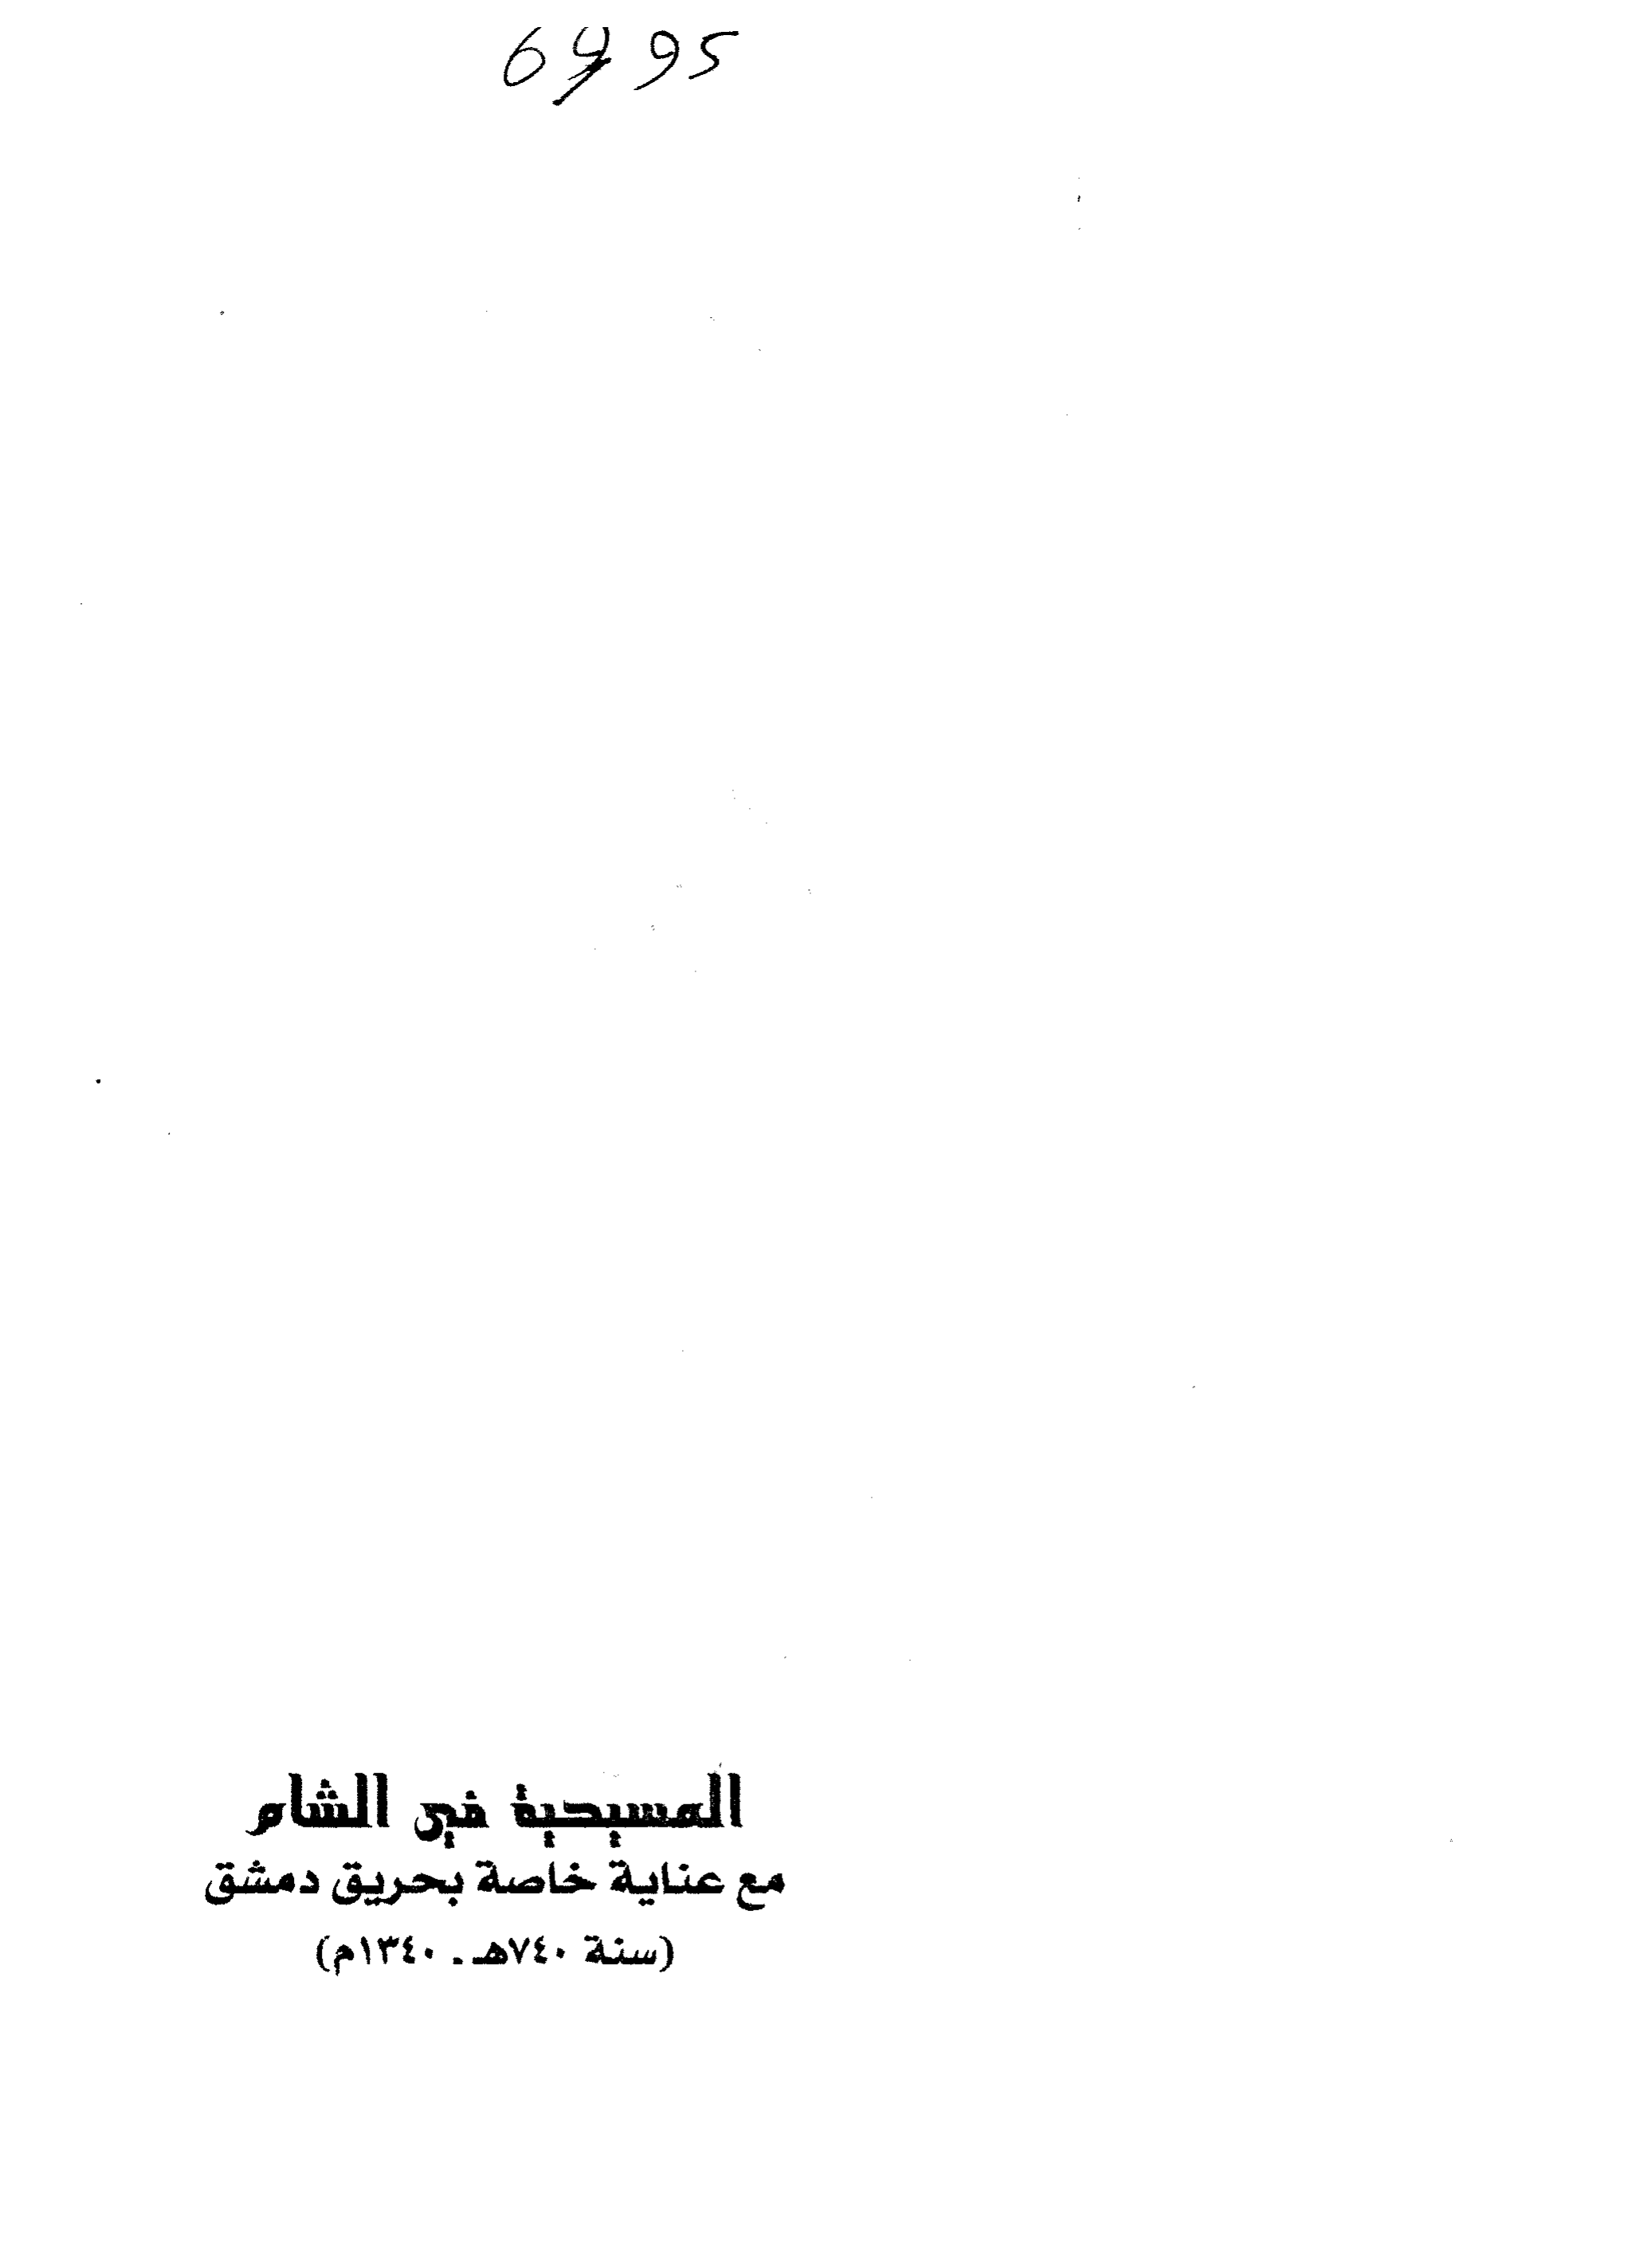 المسيحية في الشام
مع عناية خاصة بحريق دمشق
(سنة ٧٤٠هـ . ١٣٤٠م)